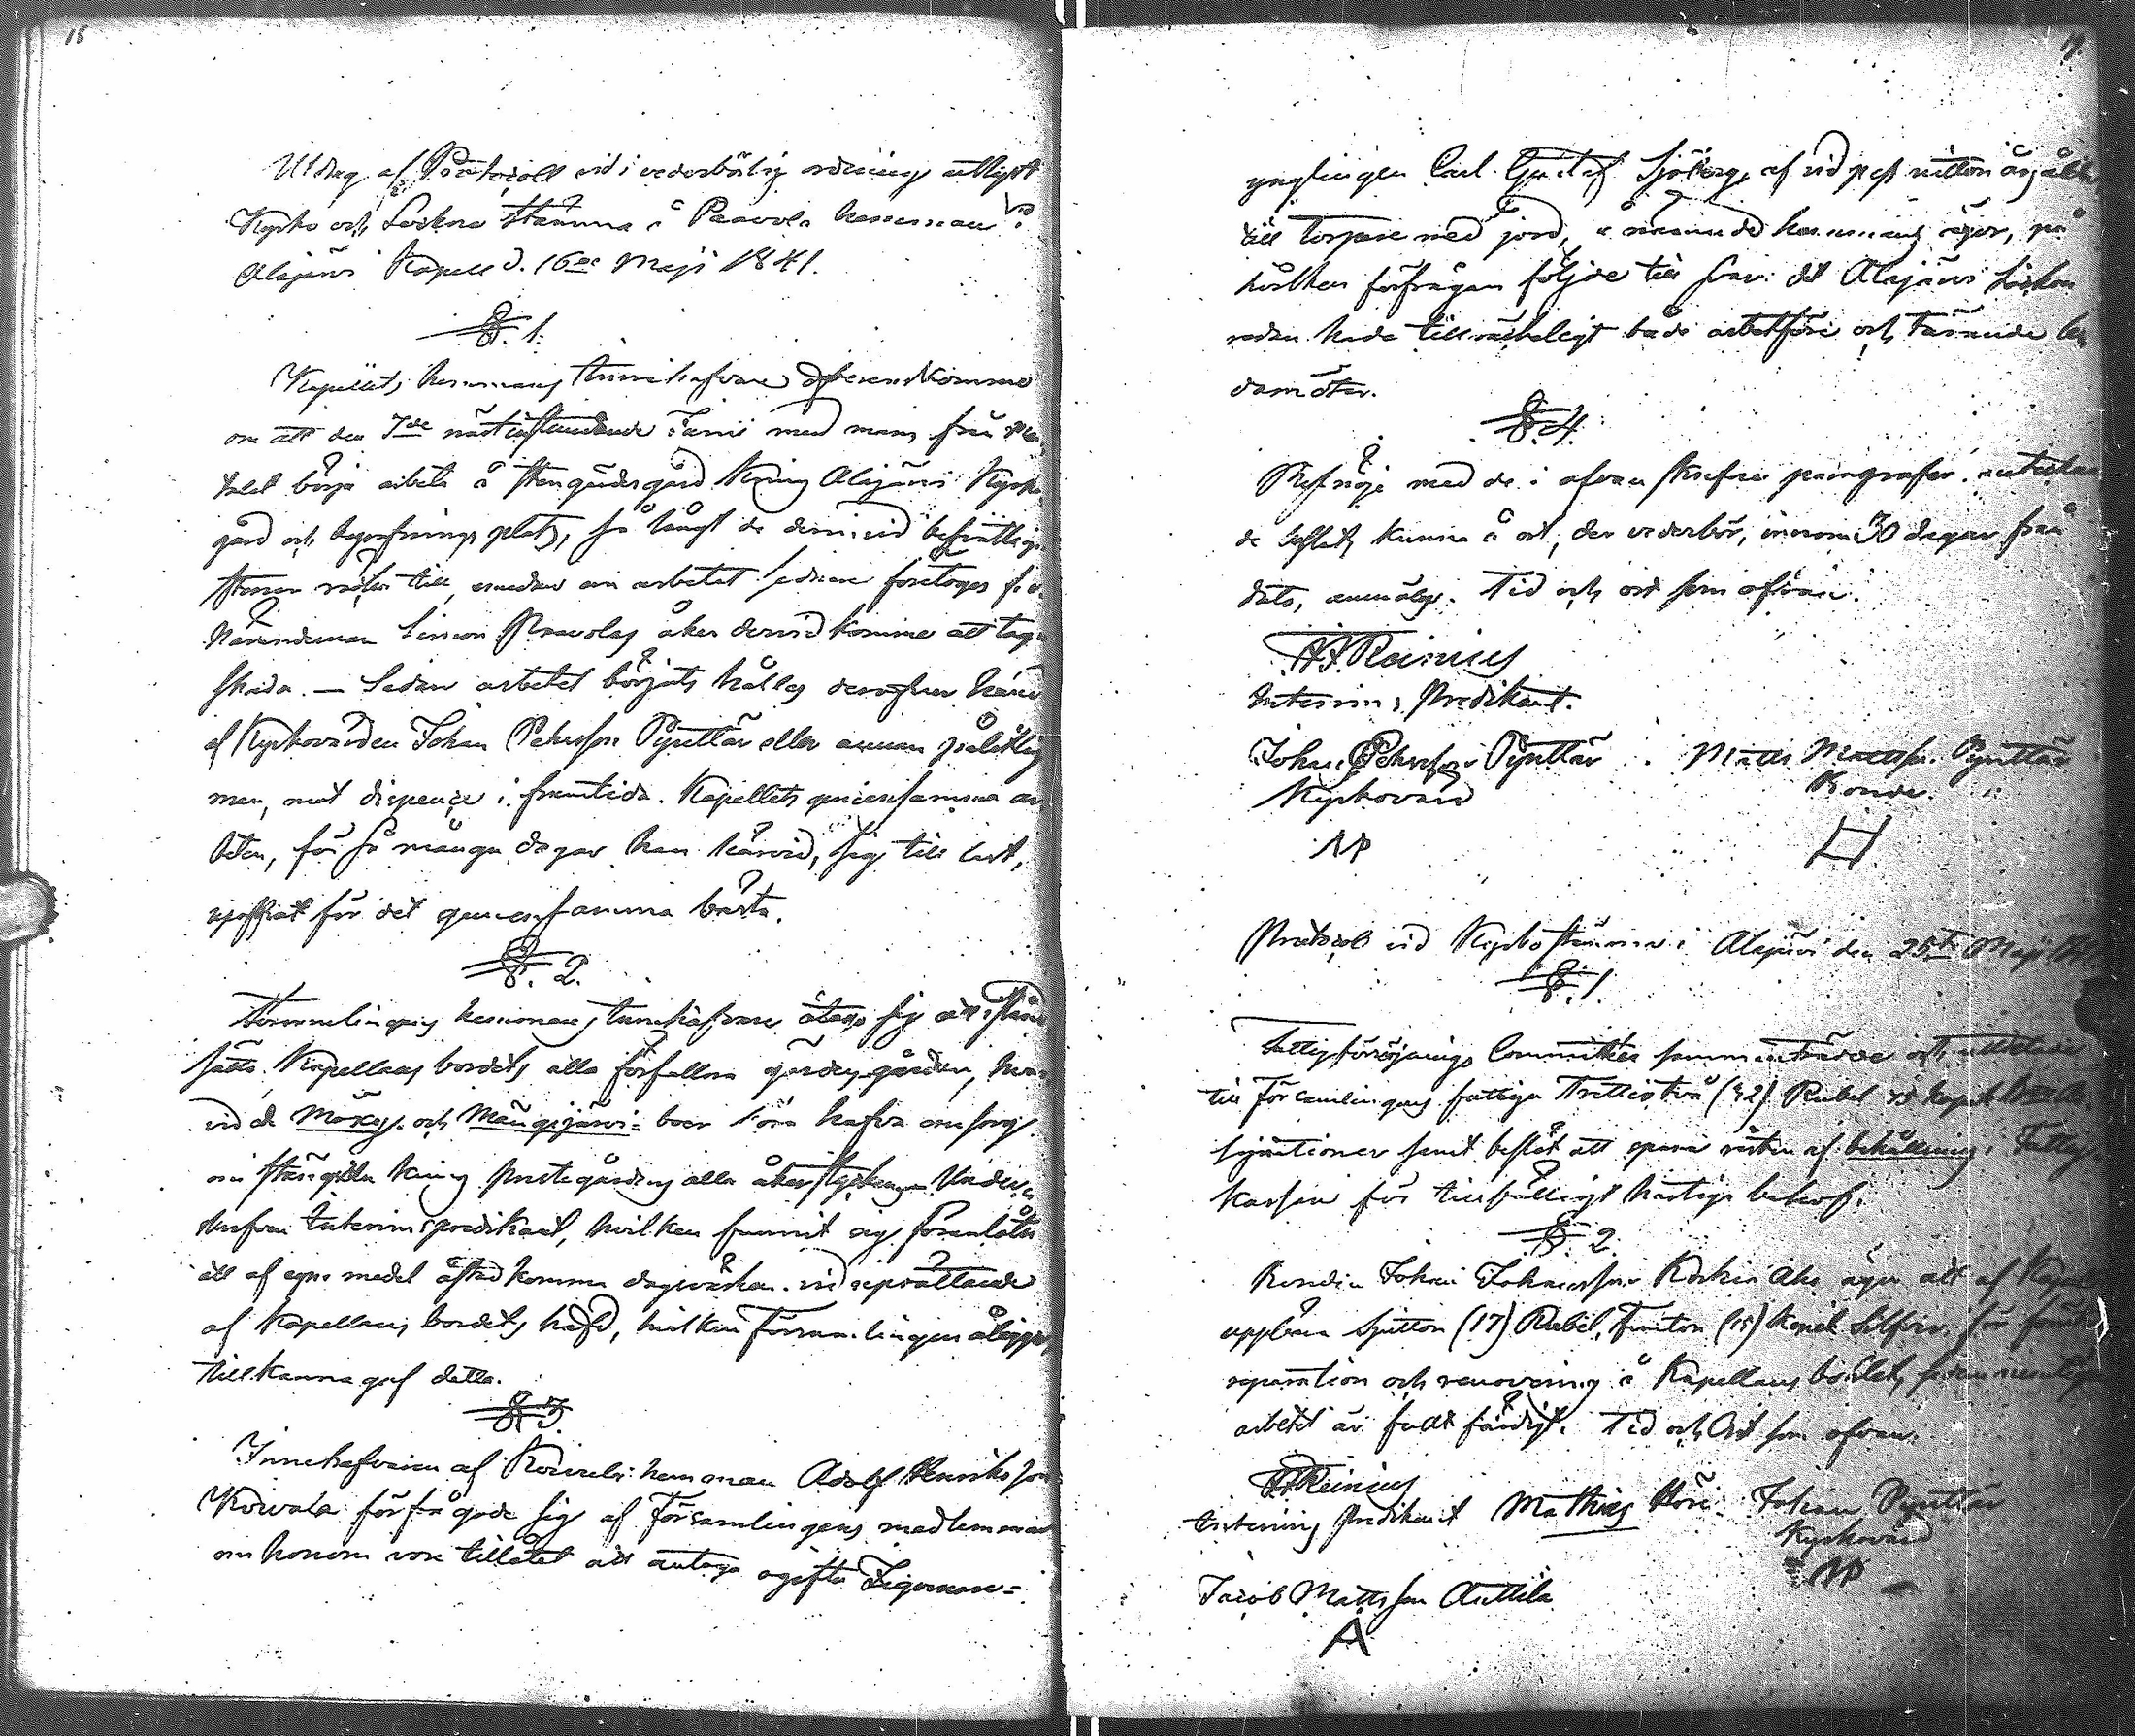 18
Utdrag af Protocoll vid i vederbörlig ordning utlyst
Kyrko och Sockne stämma å Paavola hemman vid
Alajärvi Kapell d. 16de Maji 1841.
§. 1.
Kapellets hemmans innehafvare öfverenskommo
om att den 7de nästinstundande Junii med mans från
talet börja arbeta å stengärdesgård kring Alajärvi Kyrko
gård och begrafnings plats, så långt de dervid
stenar räcker till, emedan om arbetet sednare företoges
Nämndeman Simon Paavolas åker dervid komme att taga
skada. — Sedan arbetet börjats hålles deröfver
af Kyrkovärden Johan Pehrsson Pynttär eller annan pålitlig
man, mot dispence i framtida Kapellets gemensamma ar
beten, för så många dagar han härvid, sig till last,
uppoffrat för det gemensamma bästa.
§. 2.
Församlingens hemmans innehafvare åtogo sig att istånd
sätta Kapellans bordets alla förfallna gärdesgårdar,
vid de Möxy- och Mängijärvi- boer böra hafva omsorg
om stängslen kring prestegårdens alla åkerstycken
Interimspredikant, hvilken funnit sig föranlåten
att af egna medel åstadkomma dagsverken vid upprättande
af Kapellans bordets häfd, hvilken Församlingen åligger,
tillkännagaf detta.
§ 3.
Innehafvaren af Koivula hemman Adolf Henriksson
Koivula förfrågade sig af Församlingens medlemmar
om honom vore tillåtet att antaga ogifta Zigenare=
19.
ynglingen Carl Gustaf Sjöberg, af vid pass nitton års ålder
till torpare med jord, å nämnde hemmans ägor, på
hvilken förfrågan följde till svar: det Alajärvi Socken
redan hade tillräckeligt både arbetsföre och tärande le
damöter.
§. 4.
Missnöje med de i ofvanskrefne paragrafer antecknade
de beslut, kunna å ort, der vederbör, innom 30 dagar från
dato, anmälas. Tid och ort som ofvan.
Reinius
Interims Predikant.
Johan Pehrsson Pynttär Matts Mattsson Pynttär
Kyrkovärd Bonde
NP
Protocoll vid Kyrkostämma i Alajärvi den 25te Maji
§. 1
Fattigförsörjnings Committéen sammanträdde och utdelade
till Församlingens fattiga Trettiotvå (32) Rubel 75 kopek
samt beslöt att spara resten af behållning i Fattig
kassan för tillfälligt hastiga behof.
§. 2
Bonden Johan Johansson Koskin Aho äger att af
uppbära Sjutton (17) Rubel, Femton (15) kopek Silfver, för
reparation och renovering å Kapellans bostället,
arbetet är fullt färdigt. Tid och Ort som ofvan.
Reinius
Interims Predikant Mathias Höri Johan Pynttär
Kyrkovärd
NP
Jacob Mattsson Anttila
A